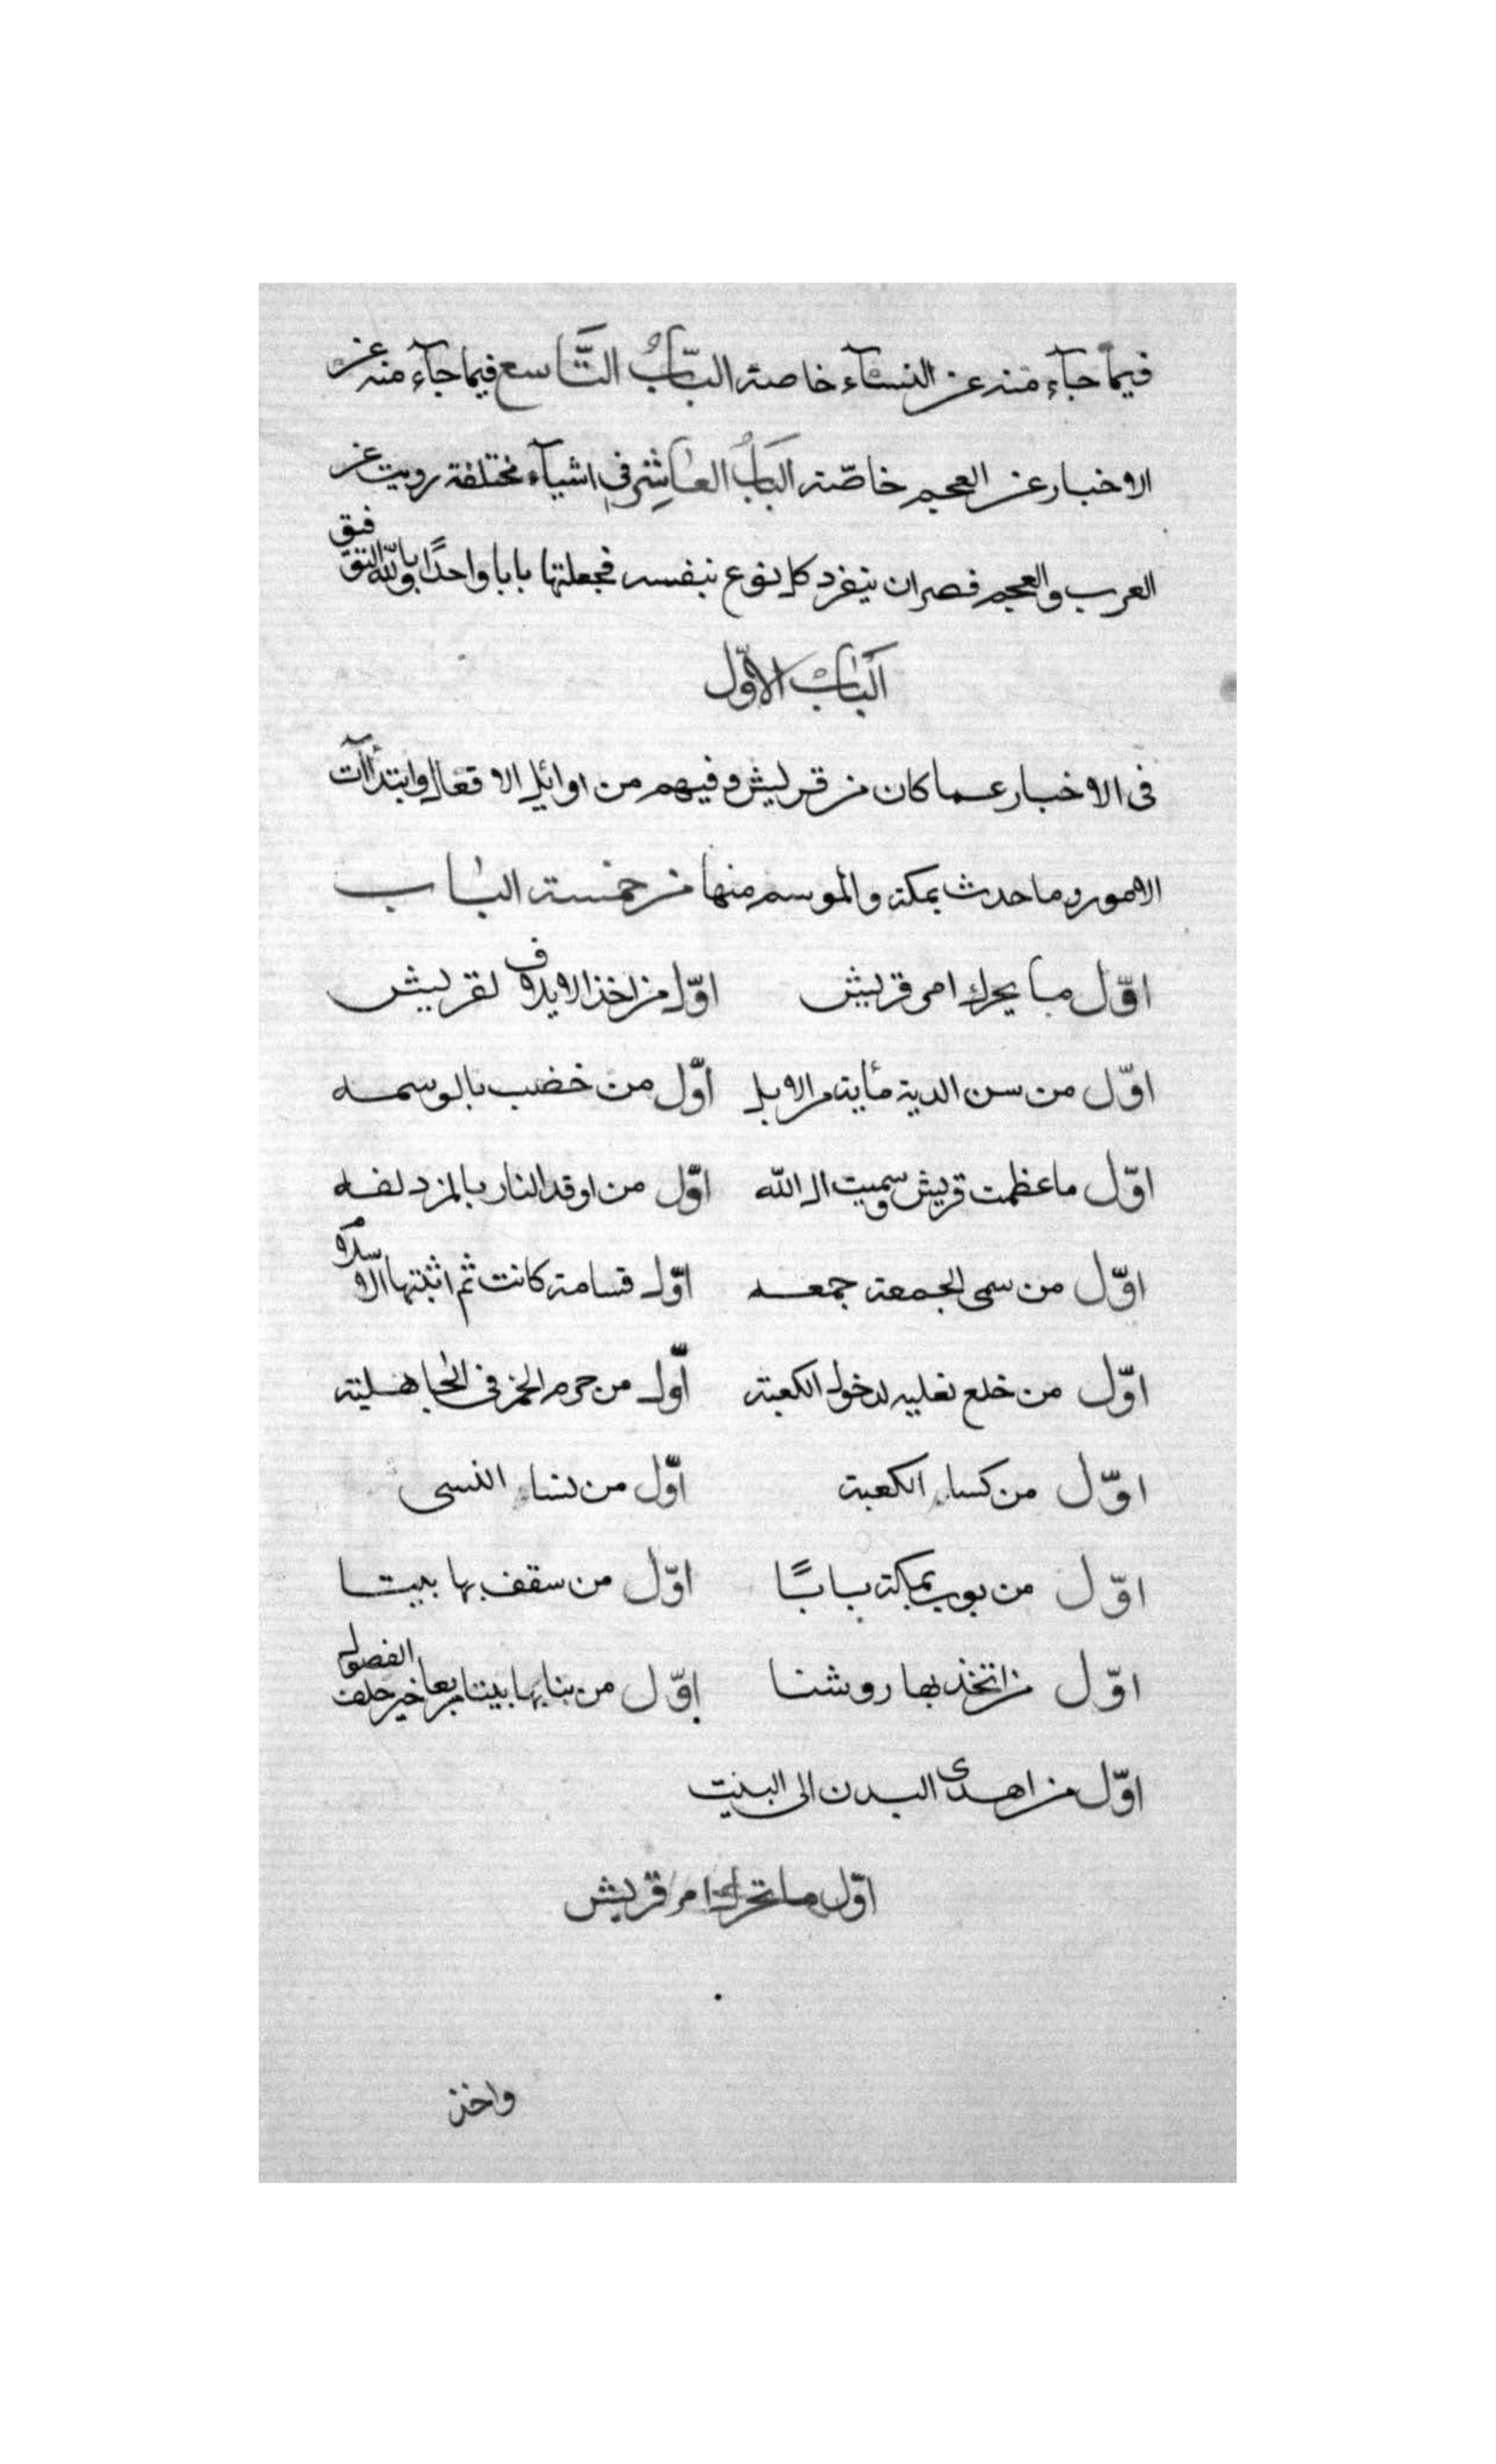 فيما جآء منه عن النسآء خاصة البَابُ التَّاسع فيما جآء منه عن
الاخبار عن العجم خاصّة البَابُ العَاشر فى اشيآء مختلفة رويت عن
العرب والعجم فصران ينفرد كل نوع بنفسه فجعلتها بابا واحدًا وبالله التوفيق
اَلبَابُ الاوّل
فى الاخبار عما كان من قريش وفيهم من اوائل الافعال وابتدآات
الامور وما حدث بمكة والموسم منها من خمسة الباب
اوّل ما يحرك امر قريش اوّل من اخذ الايلاف لقريش
اوّل من سن الدية مأية من الابل اوّل من خضب بالوسمه
اوّل ما عظمت قريش وسميت ال الله اوّل من اوقد النار بالمزدلفه
اوّل من سمى الجمعة جمعه اوّل قسامة كانت ثم اثبتها الاسلام
اوّل من خلع نعليه لدخول الكعبة اوّل من حرم الخمر فى الجاهلية
اوّل من كساء الكعبة اوّل من نساء النسى
اوّل من بوب بمكة بابًا اوّل من سقف بها بيتا
اوّل من اتخذ بها روشنا اوّل من بنا بها بيتا مربعا خبر حلف الفصول
اوّل من اهدى البدن الى البيت
اوّل ما تحرك امر قريش
واخذ